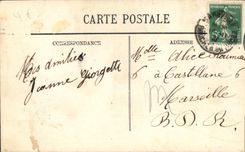 CARTE POSTALE
CORRESPONDANCE
ADRESSE
Mes amitiés
Jeanne Giorgette
Melle Alice
à Castellane 6
Marseille
B.D.R.